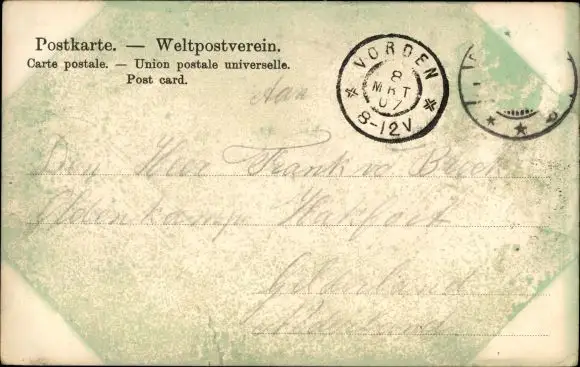 Postkarte. — Weltpostverein.
Carte postale. — Union postale universelle.
Post card.
VORDEN
8
MRT
07
8-12V
Aan
Den Heer Frank v Broek
Hakfort
Gelderland